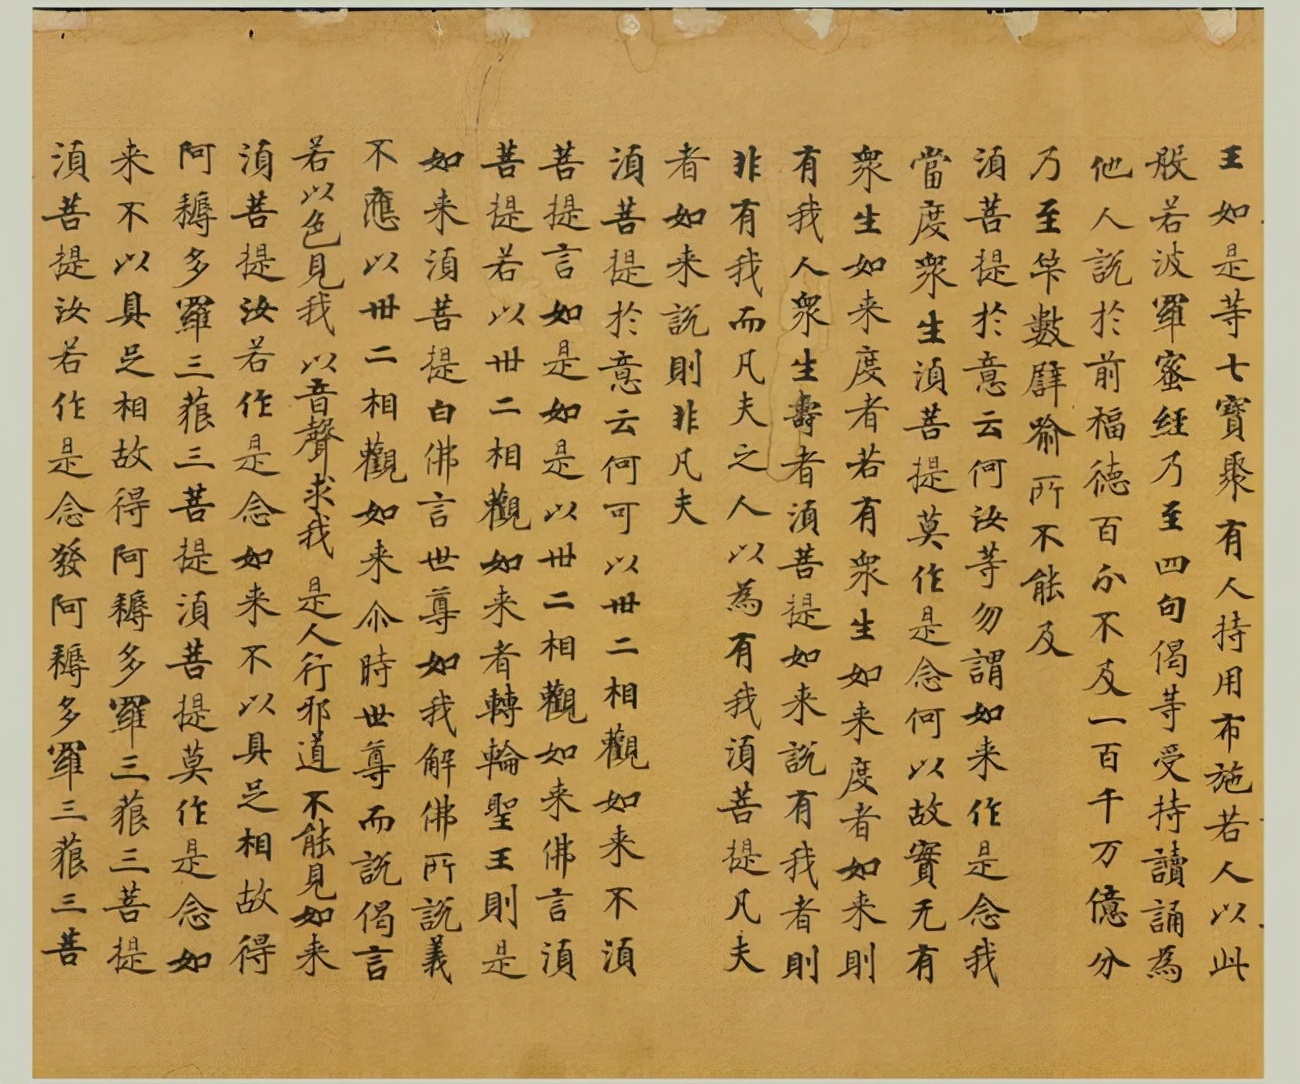 王如是等七寶聚有人持用布施若人以此
般若波羅蜜經乃至四句偈等受持讀誦為
他人說於前福德百分不及一百千万億分
乃至筭數譬喻所不能及
湏菩提於意云何汝等勿謂如来作是念我
當度衆生湏菩提莫作是念何以故實无有
衆生如来度者若有衆生如来度者如来則
有我人衆生壽者湏菩提如来說有我者則
非有我而凡夫之人以為有我湏菩提凡夫
者如来說則非凡夫
湏菩提於意云何可以卅二相觀如来不湏
菩提言如是如是以卅二相觀如来佛言湏
菩提若以卅二相觀如来者轉輪聖王則是
如来湏菩提白佛言世尊如我解佛所說義
不應以卅二相觀如来尒時世尊而說偈言
若以色見我以音聲求我 是人行邪道不能見如来
湏菩提汝若作是念如来不以具足相故得
阿耨多羅三藐三菩提湏菩提莫作是念如
来不以具足相故得阿耨多羅三藐三菩提
湏菩提汝若作是念發阿耨多羅三藐三菩